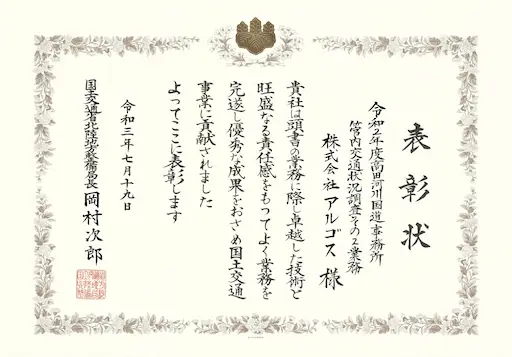 表彰状
令和2年度高田河川国道事務所
管内交通状況調査その2業務
株式会社アルゴス様
貴社は頭書の業務に際し卓越した技術と
旺盛なる責任感をもってよく業務を
完遂し優秀な成果をおさめ国土交通
事業に貢献されました
よってここに表彰します
令和三年七月十九日
国土交通省北陸地方整備局長 岡村次郎